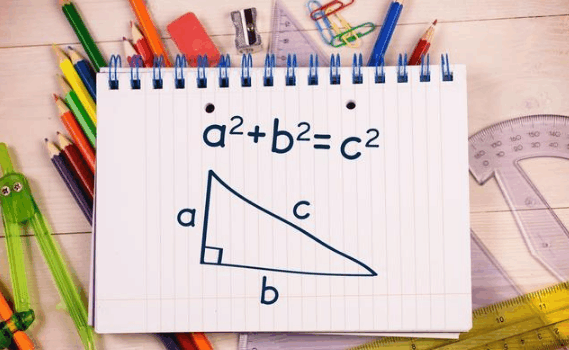 a²+b²=c²
a
c
b